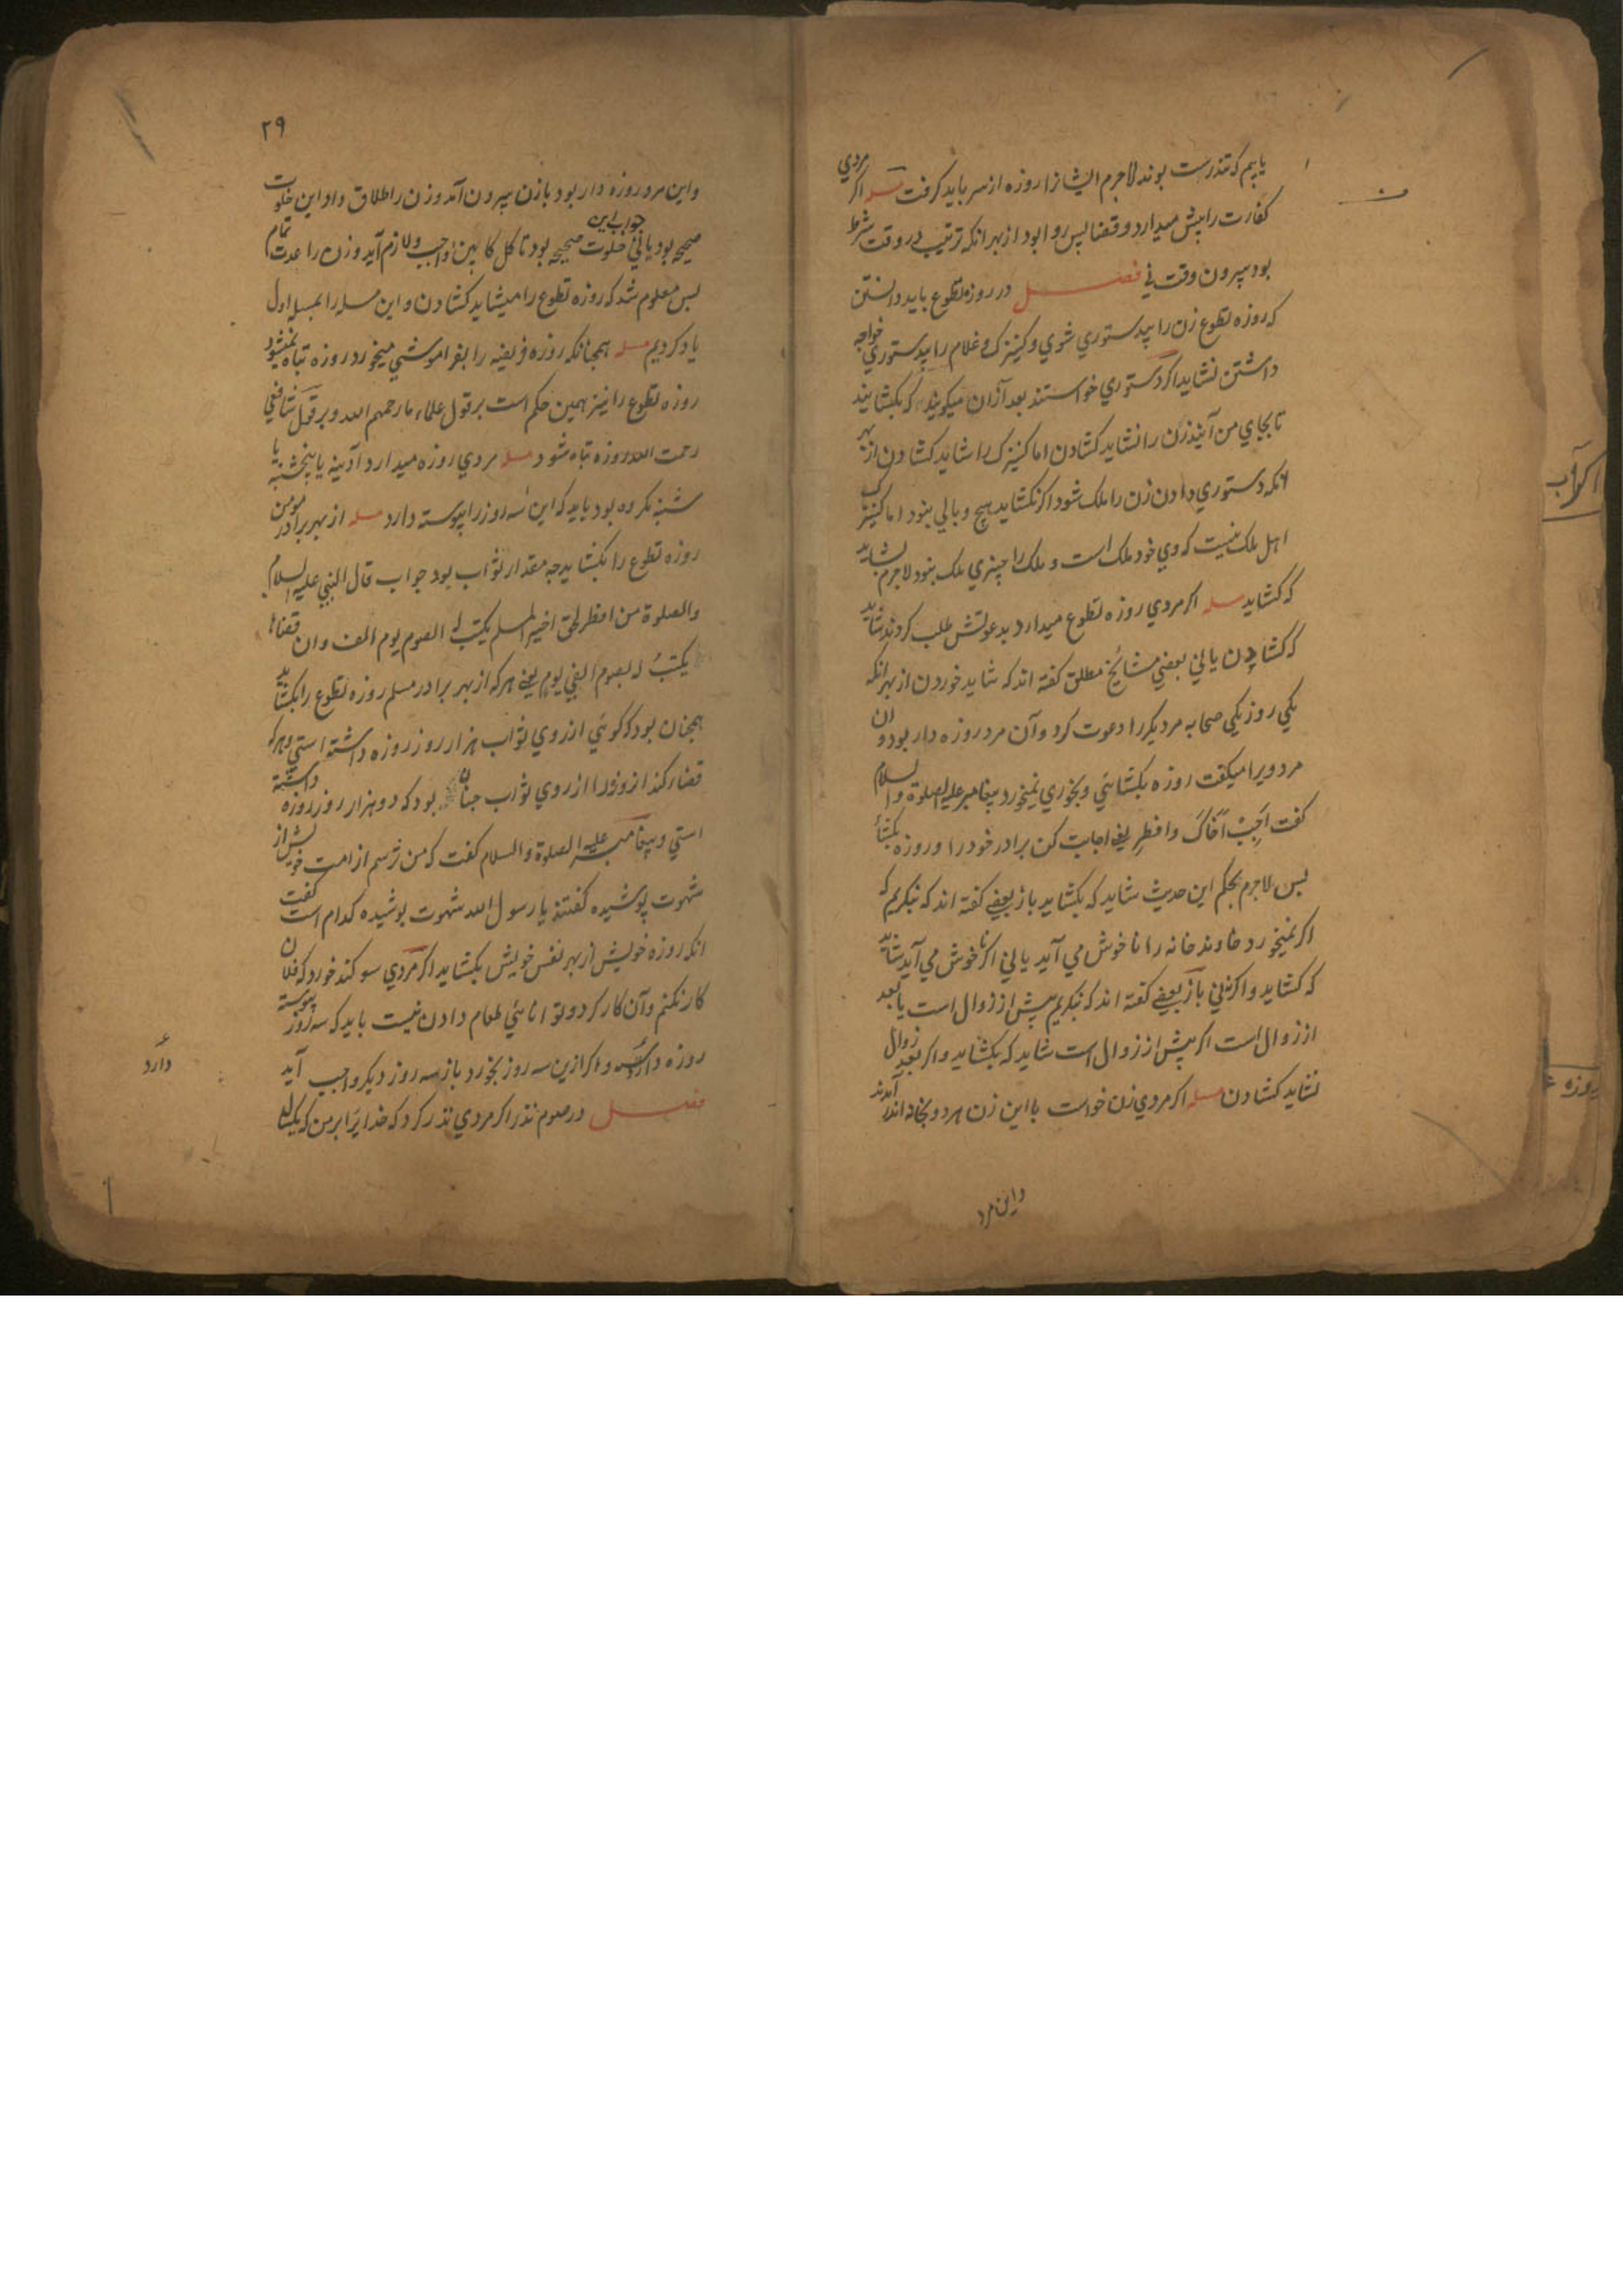 یابیم که تندرست بوند لاجرم ایشانرا روزه از سر باید کرفت مسله اکر مردي
کفارت را پیش میدارد و قضا پس روا بود از بهر انکه ترتیب در وقت شرط
بود بیرون وقت ني فصل در روزه تطوع باید دانستن
که روزه تطوع زن را بیدستوري شوي و کنیزک و غلام را بیدستوري خواجه
داشتن نشاید اکر دستوري خواستند بعد ازان میکویند که بکشایند
تا بجاي من آیند زن را نشاید کشادن اما کنیزک را شاید کشادن از بهر
انکه دستوري دادن زن را ملک شود اکر نکشاید هیچ وبالي بنود اما کنیزک
اهل ملک نیست که وي خود ملک است و ملک را چیزي ملک بنود لاجرم بشاید
که کشاید مسله اکر مردي روزه تطوع میدارد بدعوتش طلب کردند شاید
که کشادن یا ني بعضي مشائخ مطلق کفته اند که شاید خوردن از بهر انکه
یکي روز یکي صحابه مر دیکر را دعوت کرد و آن مرد روزه دار بود و ان
مرد ویرا میکفت روزه بکشائي و بخوري نمیخورد پیغامبر علیه الصلوة و السلام
کفت اَجِبْ اَخَاکَ وافطِر یعنے اجابت کن برادر خود را و روزه بکشاي
پس لاجرم بحکم این حدیث شاید که بکشاید باز بعضے کفته اند که نبکریم که
اکر نمیخورد خاوند خانه را ناخوش مي آید یا ني اکر ناخوش مي آید شاید
که کشاید و اکر ني ني باز بعضے کفته اند که نبکریم پیش از زوال است یا بعد
از زوال است اکر پیش از زوال است شاید که بکشاید و اکر بعد زوال
نشاید کشادن مسله اکر مردي زن خواست با این زن هر دو بخانه اندر آمدند
واین مرد
روزه
۲۹
واین مرد روزه دار بود با زن بیرون آمد و زن را طلاق داد این خلوت
صحیح بود یا ني جواب این خلوت صحیح بود تا کل کابین واجب و لازم آید و زن را عدت تمام
پس معلوم شد که روزه تطوع را میشاید کشادن و این مسله را بمسله اول
یاد کردیم مسله همچنانکه روزه فریضه را بفراموشي میخورد روزه تباه نمیشود
روزه تطوع را نیز همین حکم است بر قول علماء ما رحمهم الله و بر قول شافعي
رحمت الله روزه تباه شود مسله مردي روزه میدارد آدینه یا پنجشنبه یا
شنبه نکرده بود باید که این سه روز را پیوسته دارد مسله از بهر برادر مومن
روزه تطوع را بکشاید چه مقدار ثواب بود جواب قال النبي علیه السلام
والصلوة من افطر لحق اخیه المسلم یکتب له الصوم یوم الف وان قضاها
یکتبُ له بصوم الفي یوم یعنے هر که از بهر برادر مسلم روزه تطوع را بکشاید
همچنان بود که کوئي از روي ثواب هزار روز روزه داشته استي و هر که
قضا کند ازو ورا از روي ثواب چنان بود که دو هزار روز روزه داشته
استي و پیغامبر علیه الصلوة والسلام کفت که من ترسم از امت خویش از
شهوت پوشیده کفتند یا رسول الله شهوت پوشیده کدام است کفت
انکه روزه خویش از بهر نفس خویش بکشاید اکر مردي سوکند خورد که فلان
کار نکنم و آن کار کرد و توانائي طعام دادن نیست باید که سه روز پیوسته
روزه دارد و اکر ازین سه روز بخورد باز سه روز دیکر واجب آید
فصل در صوم نذر اکر مردي نذر کرد که خدایرا بر من که یکسال
دارد